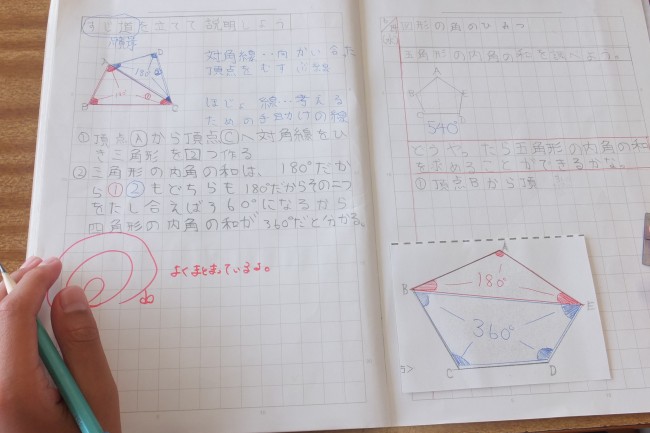 すじ道を立てて説明しよう
A
D
B
C
180°
②
①
対角線‥向かい合った
頂点をむすぶ線
ほじょ線‥考える
ための手助けの線
①頂点Ⓐから頂点Ⓒへ対角線をひ
き三角形を2つ作る
②三角形の内角の和は、180°だか
ら①②もどちらも180°だからその二つ
をたし合えば360°になるから
四角形の内角の和が360°だと分かる。
よくまとまっているよ。
図形の角のひみつ
五角形の内角の和を調べよう。
A
B
E
C
540°
どうやったら五角形の内角の和
を求めることができるかな。
①頂点Bから頂
A
B
E
C
D
180°
360°